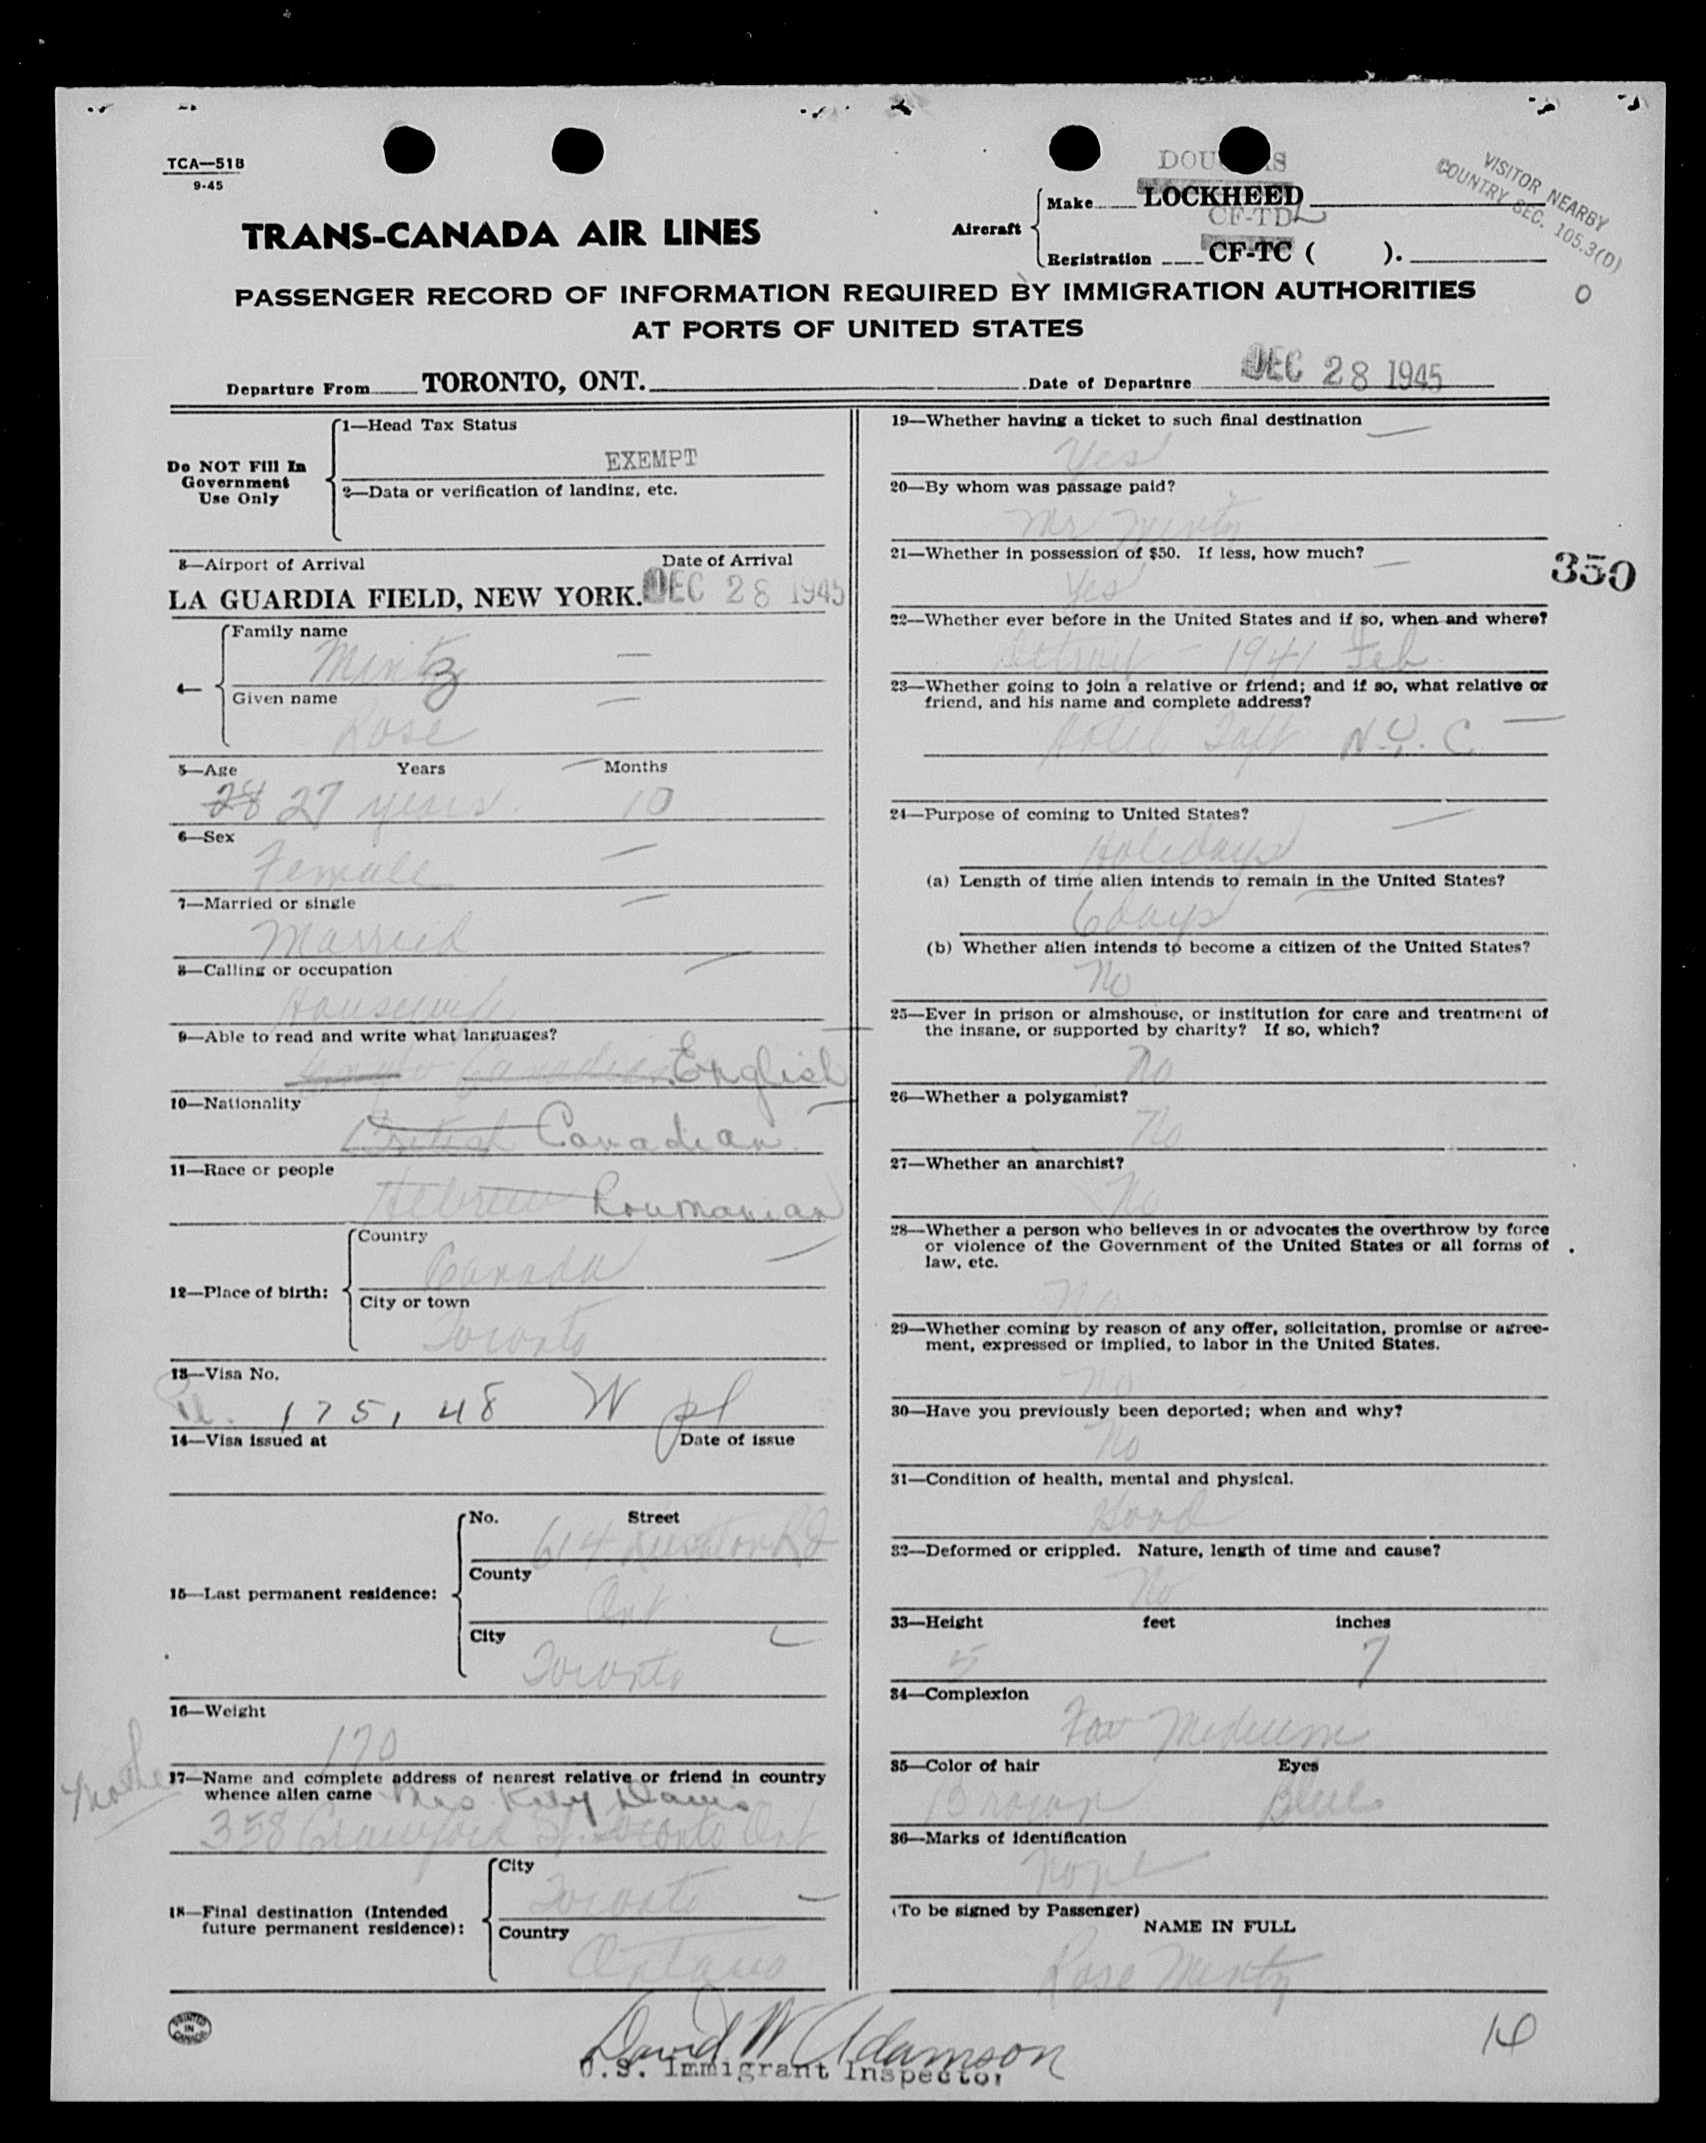 TCA—518
9-45
DOUGLAS
VISITOR NEARBY
COUNTRY SEC. 105.3(D)
0
TRANS-CANADA AIR LINES
Aircraft
Make LOCKHEED
CF-TDL
Registration CF-TC ( ).
PASSENGER RECORD OF INFORMATION REQUIRED BY IMMIGRATION AUTHORITIES
AT PORTS OF UNITED STATES
Departure From TORONTO, ONT. Date of Departure DEC 28 1945
Do NOT Fill In
Government
Use Only
1—Head Tax Status
EXEMPT
2—Data or verification of landing, etc.
3—Airport of Arrival Date of Arrival
LA GUARDIA FIELD, NEW YORK. DEC 28 1945
4—
Family name
Mintz —
Given name —
Rose
5—Age Years Months
28 27 years. 10
6—Sex
Female
7—Married or single
Married
8—Calling or occupation
Housewife
9—Able to read and write what languages?
Canadian English
10—Nationality
British Canadian
11—Race or people
Hebrew Roumanian
12—Place of birth:
Country
Canada
City or town
Toronto
13—Visa No.
175, 48 W
14—Visa issued at Date of issue
15—Last permanent residence:
No. Street
614 Rd
County
Ont
City
Toronto
16—Weight
170
Mother
17—Name and complete address of nearest relative or friend in country
whence alien came Mrs Davis
358 Crawford St. Toronto Ont
18—Final destination (Intended
future permanent residence):
City
Toronto
Country
Ontario
PRINTED
IN
CANADA
19—Whether having a ticket to such final destination
Yes
20—By whom was passage paid?
Mr Mintz
21—Whether in possession of $50. If less, how much?
Yes
350
22—Whether ever before in the United States and if so, when and where?
Detroit – 1941 Feb.
23—Whether going to join a relative or friend; and if so, what relative or
friend, and his name and complete address?
Hotel Taft N.Y.C.
24—Purpose of coming to United States?
Holidays
(a) Length of time alien intends to remain in the United States?
6 days
(b) Whether alien intends to become a citizen of the United States?
No
25—Ever in prison or almshouse, or institution for care and treatment of
the insane, or supported by charity? If so, which?
No
26—Whether a polygamist?
No
27—Whether an anarchist?
No
28—Whether a person who believes in or advocates the overthrow by force
or violence of the Government of the United States or all forms of
law, etc.
No
29—Whether coming by reason of any offer, solicitation, promise or agree-
ment, expressed or implied, to labor in the United States.
No
30—Have you previously been deported; when and why?
No
31—Condition of health, mental and physical.
Good
32—Deformed or crippled. Nature, length of time and cause?
No
33—Height feet inches
5 7
34—Complexion
Fair Medium
35—Color of hair Eyes
Brown Blue
36—Marks of identification
None
(To be signed by Passenger)
NAME IN FULL
Rose Mintz
David W Adamson
U.S. Immigrant Inspector